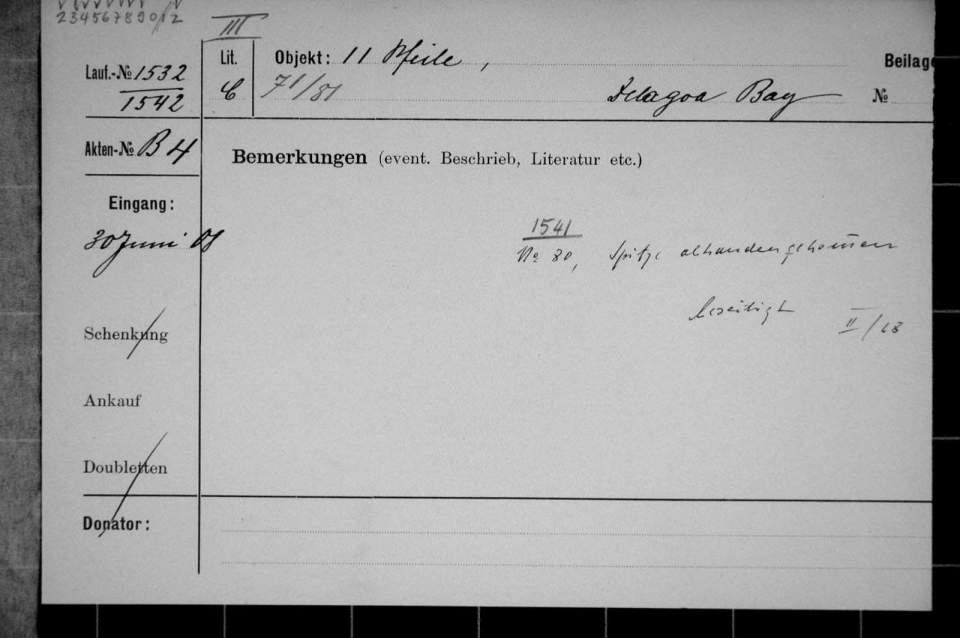 234567890/12
III
Lauf.-№ 1532
1542
Lit.
C
Objekt: 11 Pfeile,
71/81
Delagoa Bay
Beilage
№
Akten-№ B 4
Bemerkungen (event. Beschrieb, Literatur etc.)
Eingang:
30 Juni 08
1541
No 80, Spitze abhandengekommen
beseitigt
II/68
Schenkung
Ankauf
Doubletten
Donator: